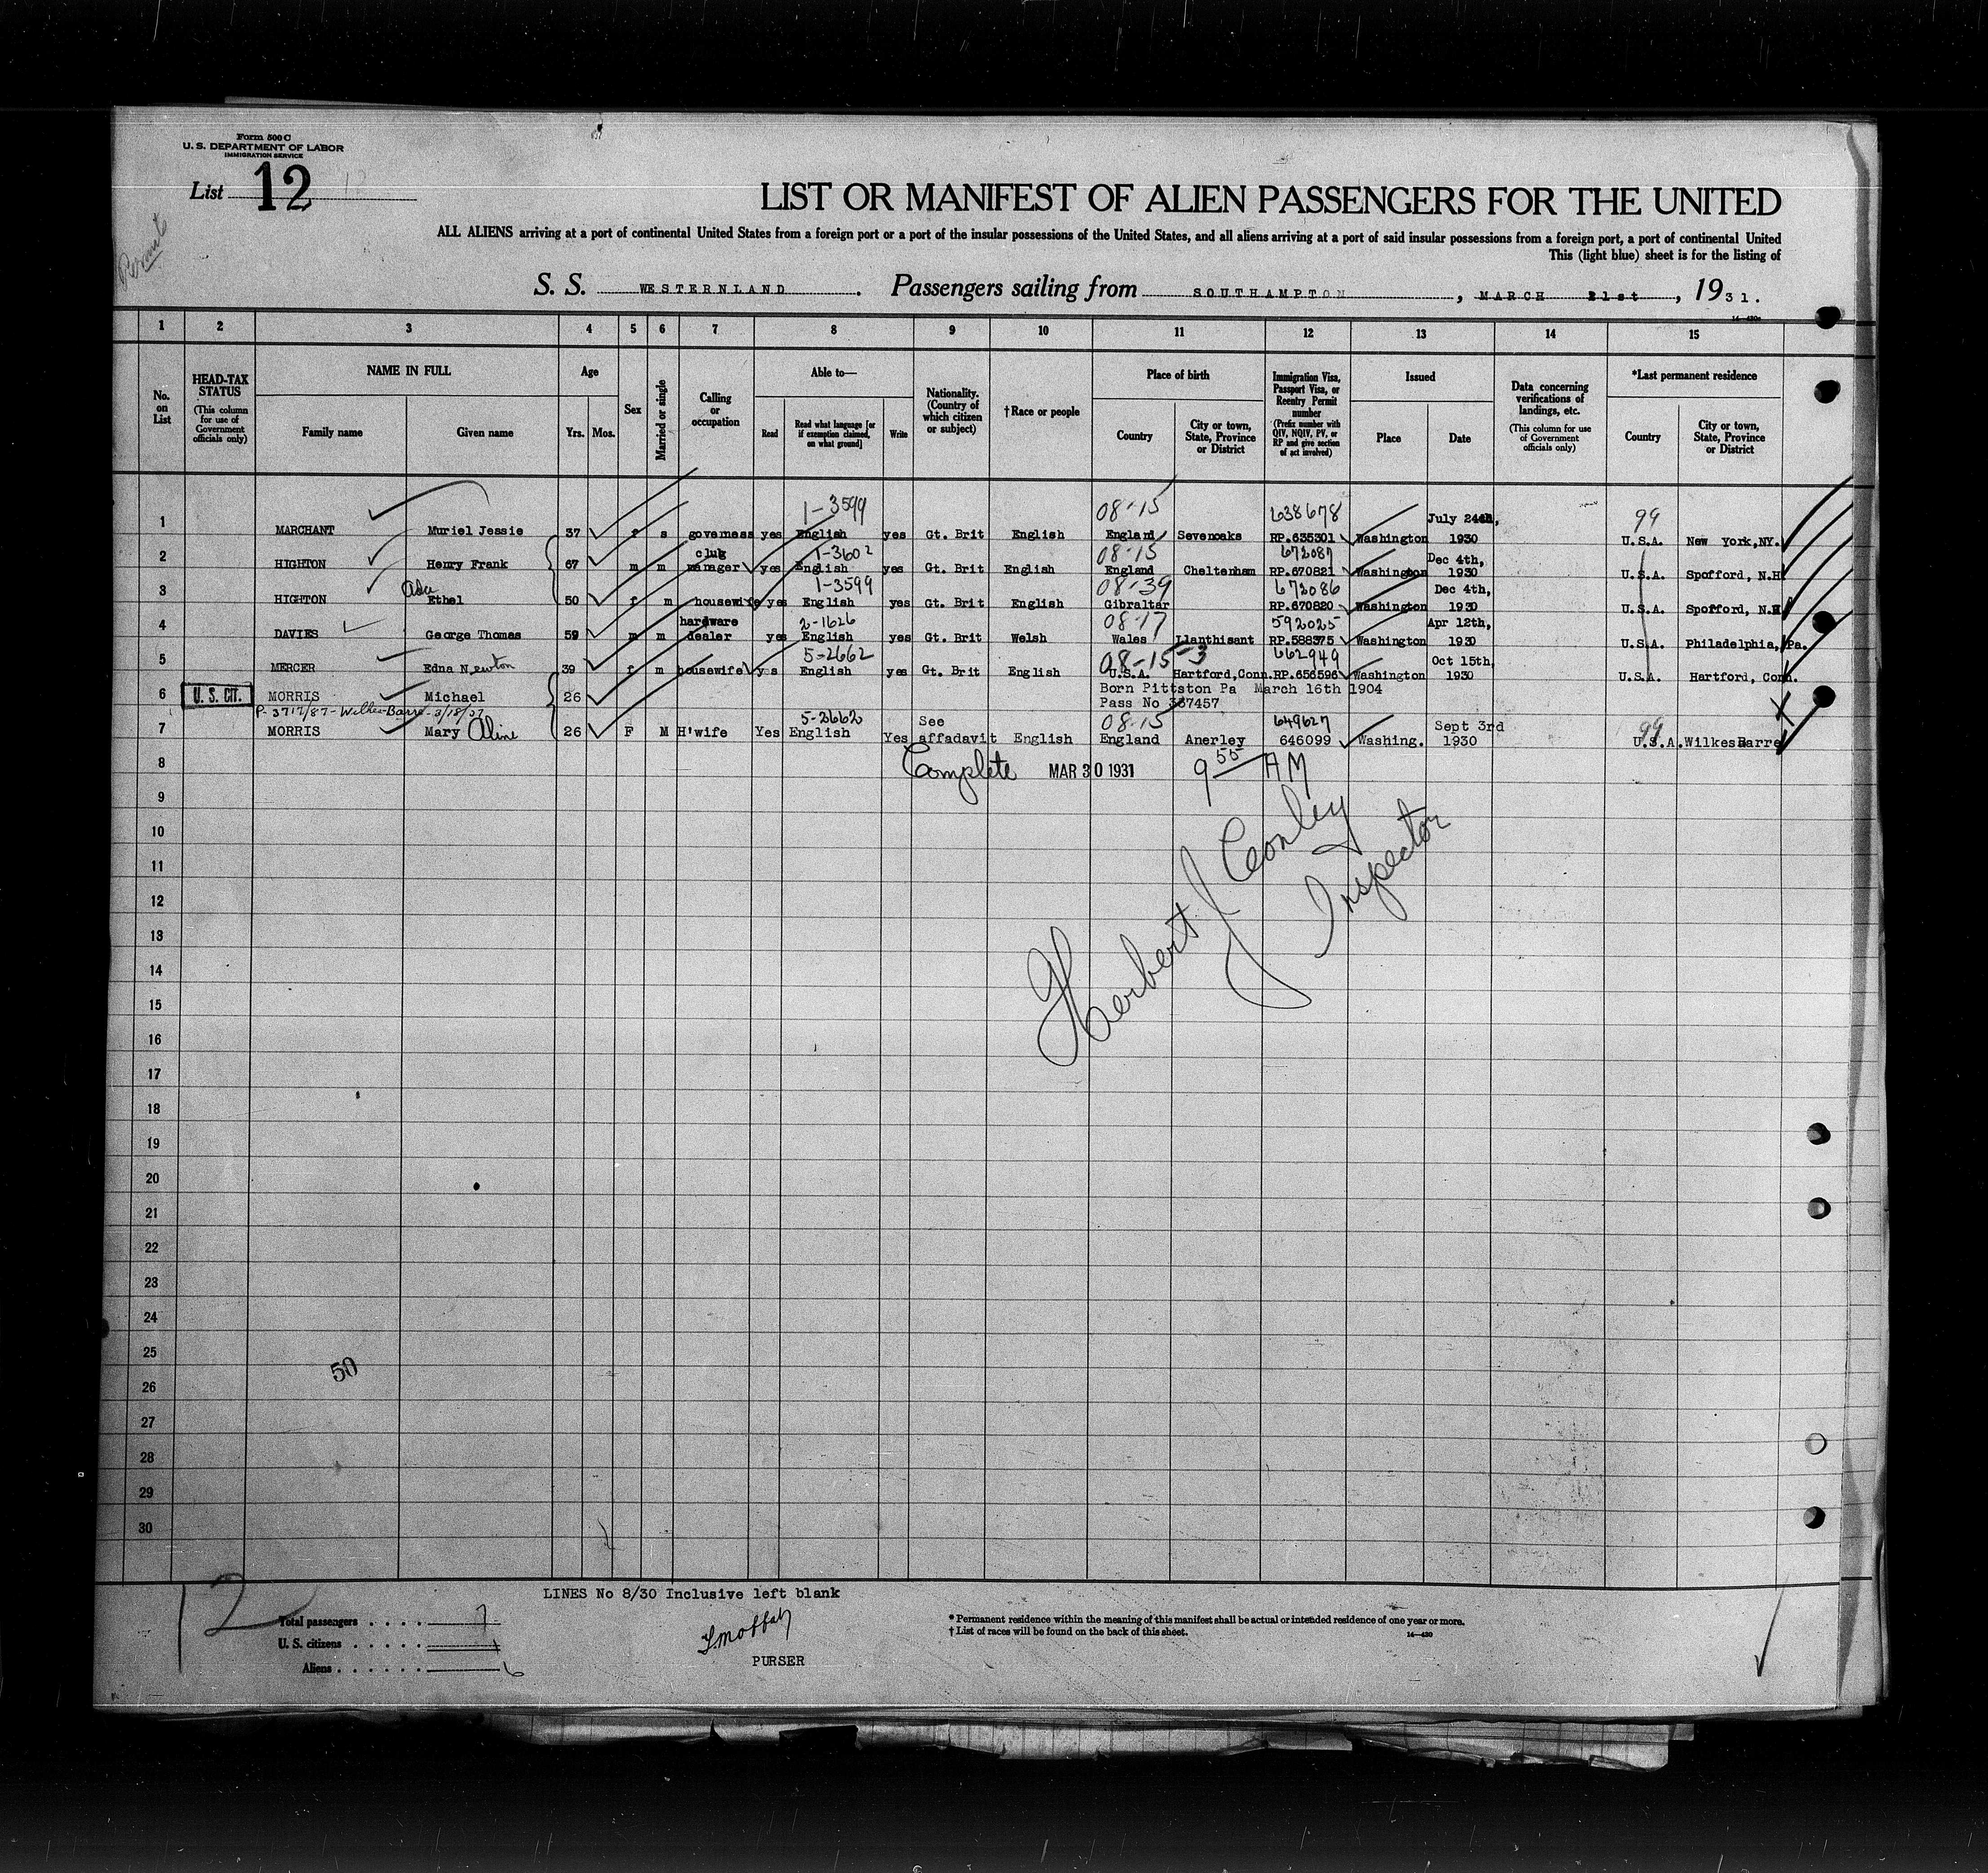 Form 500 C
U. S. DEPARTMENT OF LABOR
IMMIGRATION SERVICE
List 12 12
Permit
LIST OR MANIFEST OF ALIEN PASSENGERS FOR THE UNITED
ALL ALIENS arriving at a port of continental United States from a foreign port or a port of the insular possessions of the United States, and all aliens arriving at a port of said insular possessions from a foreign port, a port of continental United
This (light blue) sheet is for the listing of
S. S. WESTERNLAND. Passengers sailing from SOUTHAMPTON, MARCH 21st, 1931.
14—430
1 2 3 4 5 6 7 8 9 10 11 12 13 14 15
No. on List
HEAD-TAX STATUS (This column for use of Government officials only)
NAME IN FULL
Family name Given name
Age
Yrs. Mos.
Sex
Married or single
Calling or occupation
Able to—
Read Read what language [or if exemption claimed, on what ground] Write
Nationality. (Country of which citizen or subject)
†Race or people
Place of birth
Country City or town, State, Province or District
Immigration Visa, Passport Visa, or Reentry Permit number (Prefix number with QIV, NQIV, PV, or RP and give section of act involved)
Issued
Place Date
Data concerning verifications of landings, etc. (This column for use of Government officials only)
*Last permanent residence
Country City or town, State, Province or District
1-3599 08-15 638678 July 24th, 99
1 MARCHANT Muriel Jessie 37 f s governess yes English yes Gt. Brit English England Sevenoaks RP.635301 Washington 1930 U.S.A. New York,NY.
club 1-3602 08-15 672087 Dec 4th,
2 HIGHTON Henry Frank 67 m m manager yes English yes Gt. Brit English England Cheltenham RP.670821 Washington 1930 U.S.A. Spofford, N.H
Ada 1-3599 08-39 672086 Dec 4th,
3 HIGHTON Ethel 50 f m housewife yes English yes Gt. Brit English Gibraltar RP.670820 Washington 1930 U.S.A. Spofford, N.H
hardware 2-1626 08-17 592025 Apr 12th,
4 DAVIES George Thomas 59 m m dealer yes English yes Gt. Brit Welsh Wales Llanthisant RP.588375 Washington 1930 U.S.A. Philadelphia, Pa.
5-2662 08-15-3 662949 Oct 15th,
5 MERCER Edna Newton 39 f m housewife yes English yes Gt. Brit English U.S.A. Hartford,Conn. RP.656596 Washington 1930 U.S.A. Hartford, Conn.
6 U. S. CIT. MORRIS Michael 26 Born Pittston Pa March 16th 1904
P-3717/87-Wilkes-Barre-3/18/37 Pass No 337457
5-2662 See 08-15 649627 Sept 3rd 99
7 MORRIS Mary Aline 26 F M H'wife Yes English Yes affadavit English England Anerley 646099 Washing. 1930 U.S.A. Wilkes Barre
8 Complete MAR 30 1931 9 55 AM
9
10
11
12
13
14
15
16
17
18
19
20
21
22
23
24
25
26
27
28
29
30
Herbert J Conley
Inspector
50
12
LINES No 8/30 Inclusive left blank
Total passengers 7
U. S. citizens 1
Aliens 6
PURSER
* Permanent residence within the meaning of this manifest shall be actual or intended residence of one year or more.
† List of races will be found on the back of this sheet.
14—430